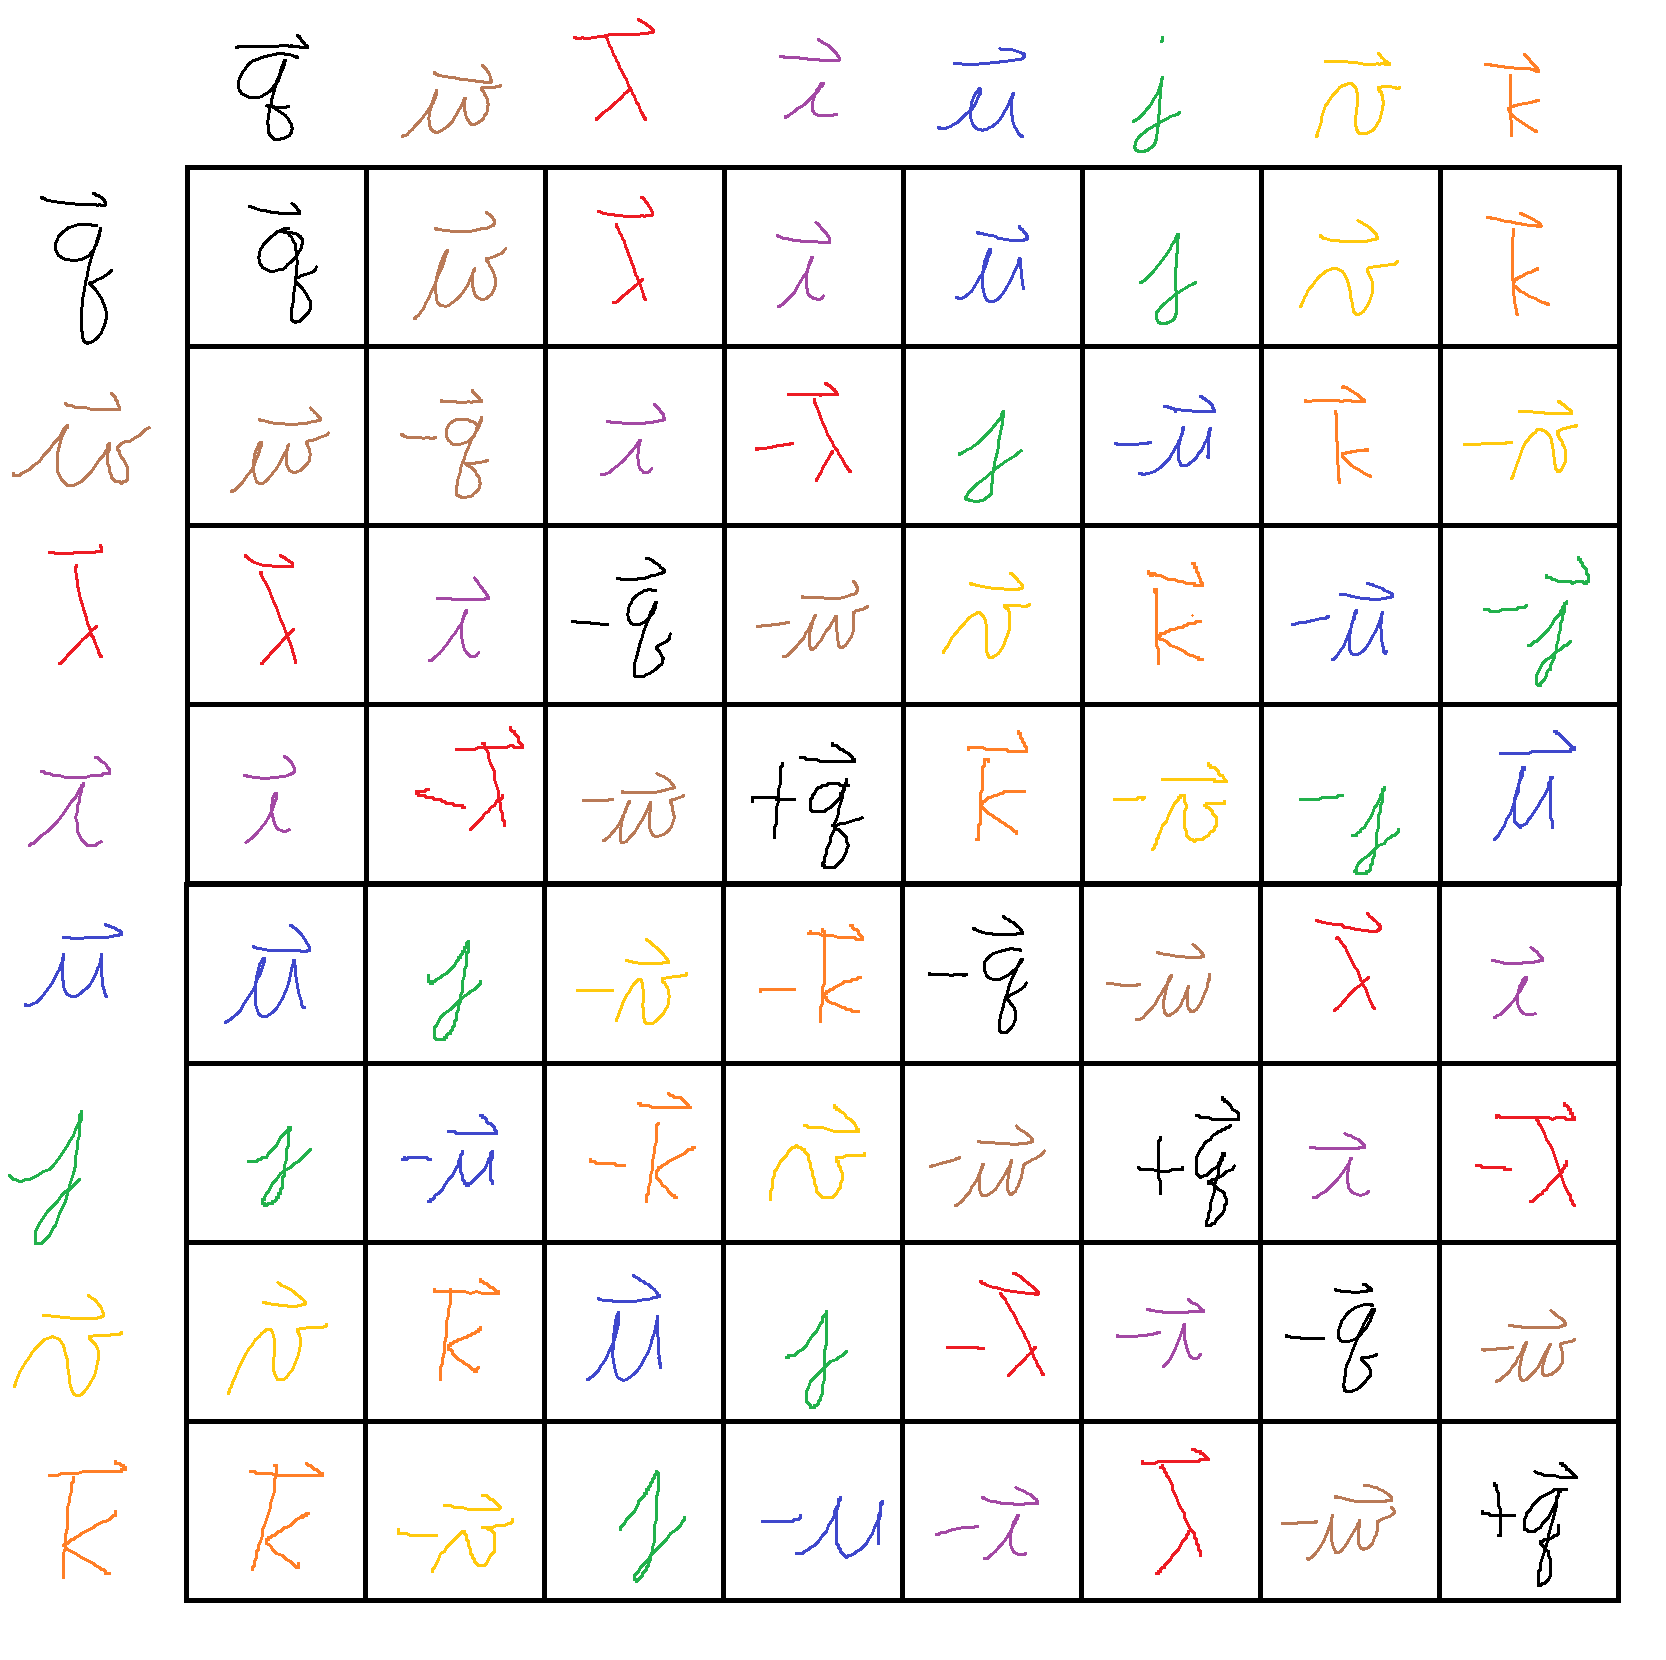 q⃗ w⃗ λ⃗ i⃗ u⃗ j v⃗ k⃗
q⃗ q⃗ w⃗ λ⃗ i⃗ u⃗ j v⃗ k⃗
w⃗ w⃗ -q⃗ i⃗ -λ⃗ j -u⃗ k⃗ -v⃗
λ⃗ λ⃗ i⃗ -q⃗ -w⃗ v⃗ k⃗ -u⃗ -j⃗
i⃗ i⃗ -λ⃗ -w⃗ +q⃗ k⃗ -v⃗ -j u⃗
u⃗ u⃗ j -v⃗ -k⃗ -q⃗ -w⃗ λ⃗ i⃗
j j -u⃗ -k⃗ v⃗ -w⃗ +q⃗ i⃗ -λ⃗
v⃗ v⃗ k⃗ u⃗ j -λ⃗ -i⃗ -q⃗ -w⃗
k⃗ k⃗ -v⃗ j -u -i⃗ λ⃗ -w⃗ +q⃗